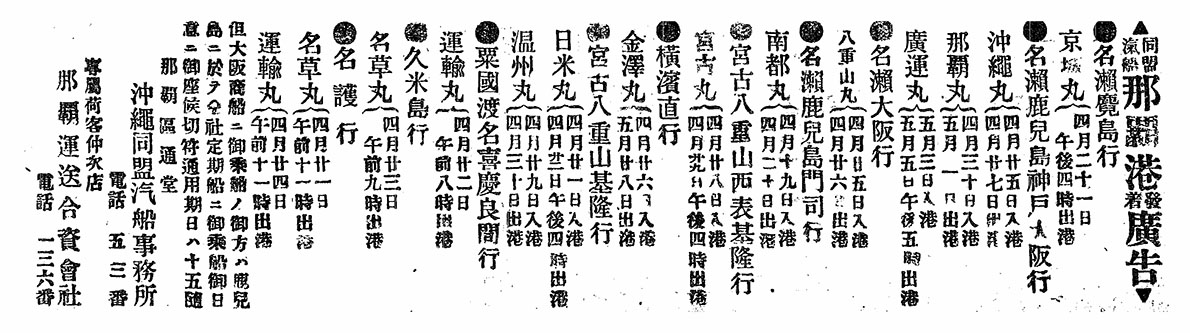 ▲同盟汽船那覇港發着廣告▼
●名瀨鹿兒島行
京城丸 四月二十一日 午後四時出港
●名瀨鹿兒島神戸大阪行
沖繩丸 四月廿五日入港 四月廿七日出港
那覇丸 四月三十日入港 五月一日出港
廣運丸 五月三日入港 五月五日午後五時出港
●名瀨大阪行
八重山丸 四月廿五日入港 四月廿六日出港
●名瀨鹿兒島門司行
南都丸 四月十九日入港 四月二十日出港
●宮古八重山西表基隆行
宮古丸 四月廿八日入港 四月廿九日午後四時出港
●橫濱直行
金澤丸 四月廿六日入港 五月廿八日出港
●宮古八重山基隆行
日米丸 四月廿一日入港 四月廿二日午後四時出港
温州丸 四月廿九日入港 四月三十日出港
●粟國渡名喜慶良間行
運輸丸 四月廿二日 午前八時出港
●久米島行
名草丸 四月廿三日 午前九時出港
●名護行
名草丸 四月廿一日 午前十一時出港
運輸丸 四月廿四日 午前十一時出港
但大阪商船ニ御乘船ノ御方ハ鹿兒
島ニ於テ會社定期船ニ御乘船御日
意ニ御座候切符通用期日ハ十五隨
那覇區通堂
沖繩同盟汽船事務所
電話 五三番
專屬荷客仲次店
那覇運送合資會社
電話 一三六番